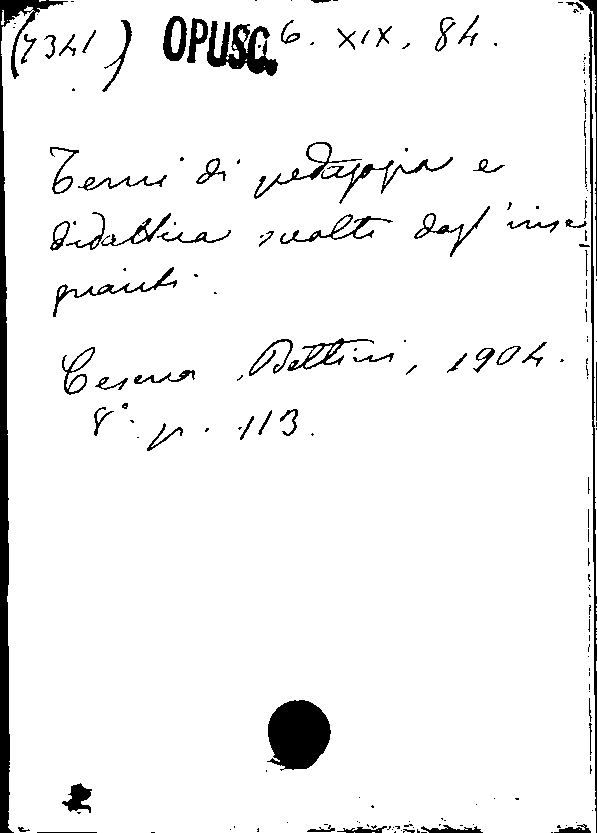 (7341) OPUSC. 6. XIX. 84.
Temi di pedagogia e
didattica svolti dagl'inse
gnanti.
Cesena, Bettini, 1904.
8° p. 113.